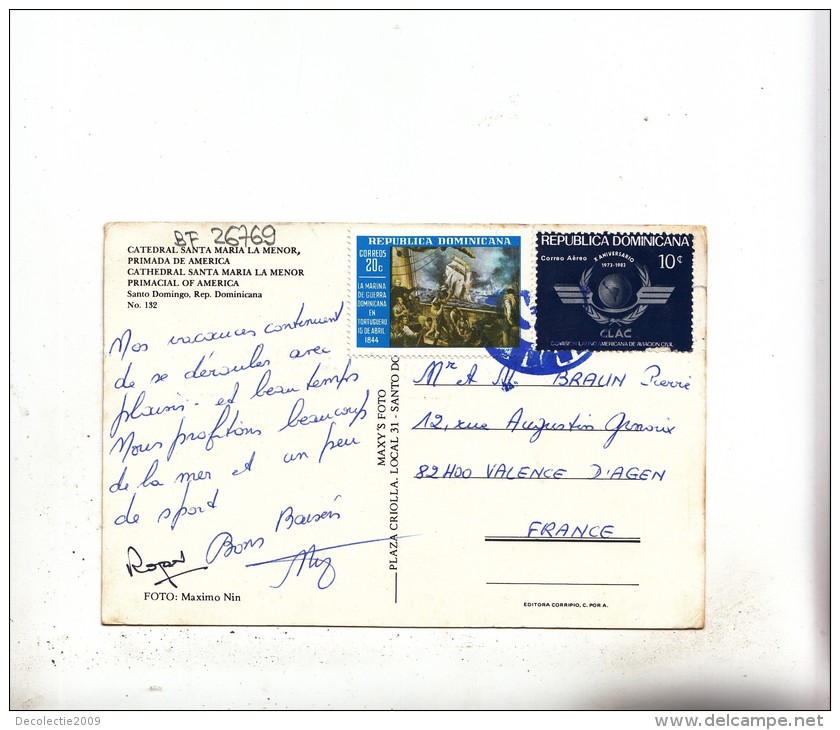 BF 26769
CATEDRAL SANTA MARIA LA MENOR,
PRIMADA DE AMERICA
CATHEDRAL SANTA MARIA LA MENOR
PRIMACIAL OF AMERICA
Santo Domingo, Rep. Dominicana
No. 132
Nos vacances continuent
de se dérouler avec
plaisir et beau temps
Nous profitons beaucoup
de la mer et un peu
de sport
Bons Baisers
Roger
FOTO: Maximo Nin
MAXY'S FOTO
PLAZA CRIOLLA. LOCAL 31 - SANTO DO
REPUBLICA DOMINICANA
CORREOS
20c
LA MARINA
DE GUERRA
DOMINICANA
EN
TORTUGUERO
15 DE ABRIL
1844
REPUBLICA DOMINICANA
Correo Aéreo
X ANIVERSARIO
1973-1983
10¢
CLAC
COMISION LATINO AMERICANA DE AVIACION CIVIL
Mr et Me BRAUN Pierre
12, rue Augustin
82400 VALENCE D'AGEN
FRANCE
EDITORA CORRIPIO, C. POR A.
Decolectie2009
delcampe.net